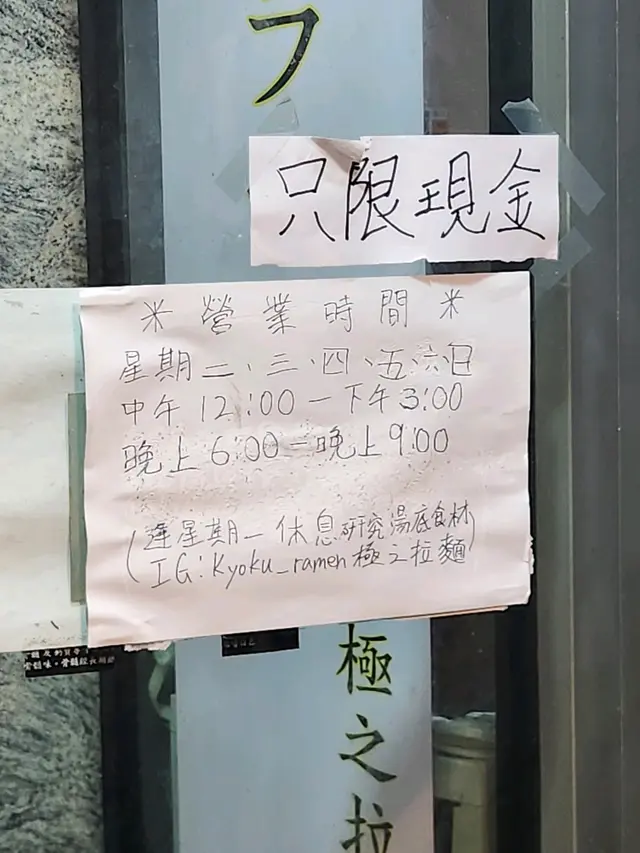 フ
只限現金
* 營業時間 *
星期二、三、四、五、六、日
中午12:00 — 下午3:00
晚上6:00 — 晚上9:00
(逢星期一休息研究湯底食材
IG: Kyoku_ramen 極之拉麵)
極之拉